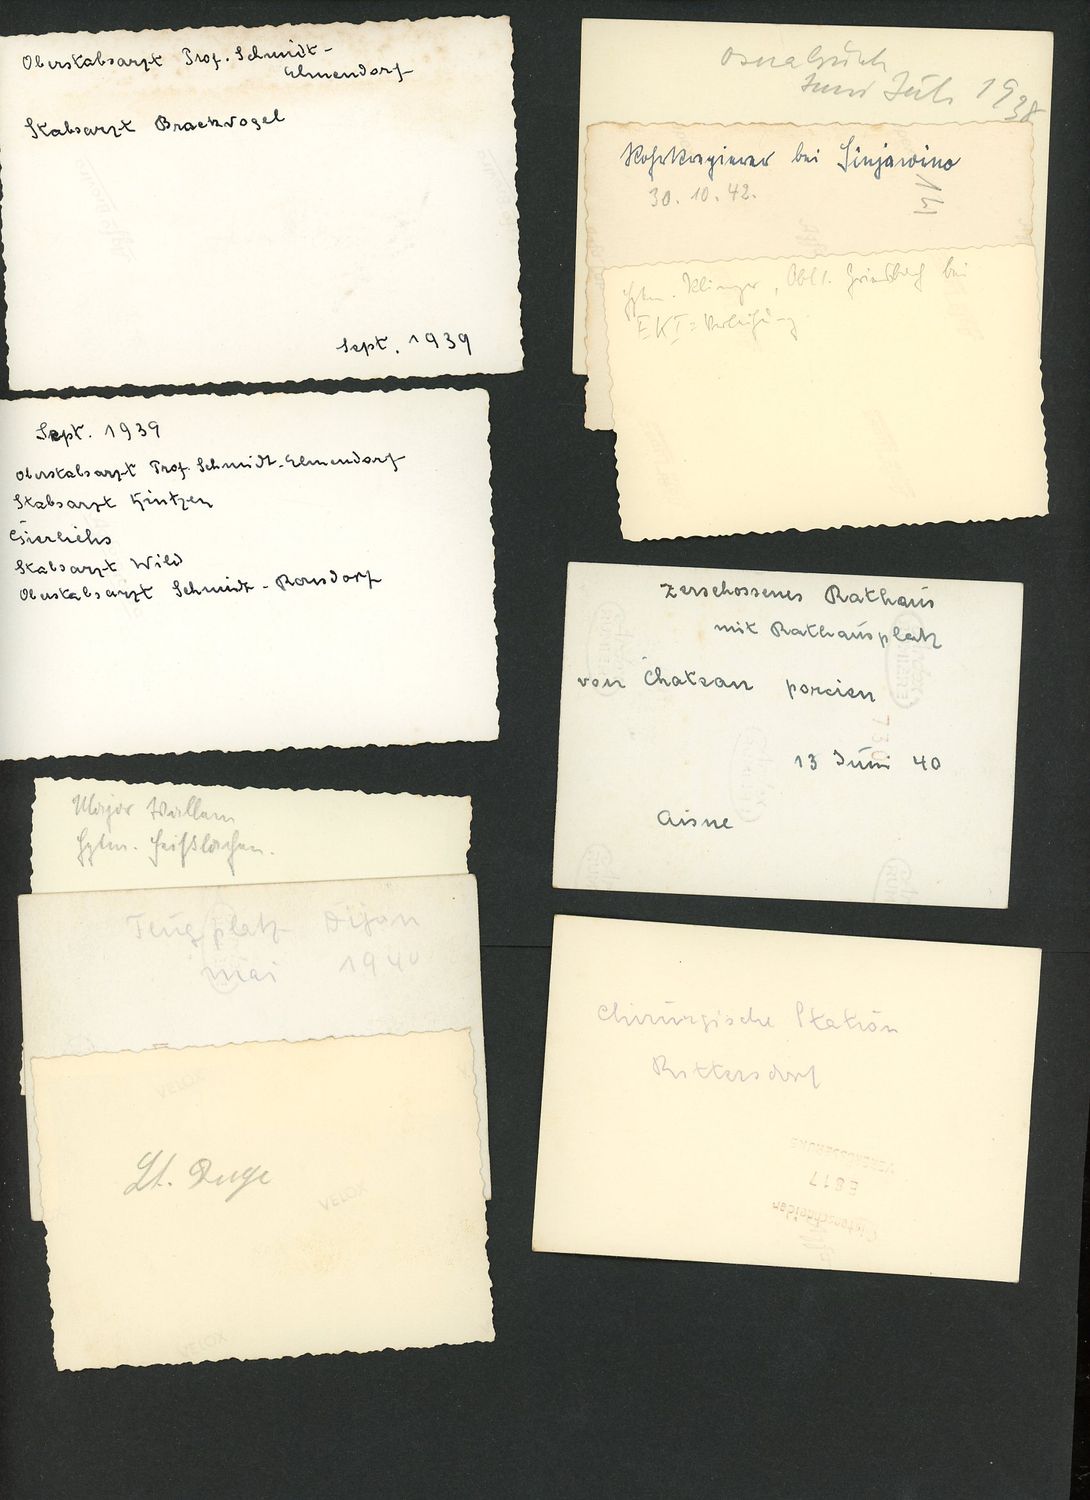 Oberstabsarzt Prof. Schmidt-
Elmendorf
Stabsarzt Brackvogel
Sept. 1939
Sept. 1939
Oberstabsarzt Prof. Schmidt-Elmendorf
Stabsarzt Hintzen
Gierlichs
Stabsarzt Wild
Oberstabsarzt Schmidt-Ronsdorf
Major Wallem
Hptm.
platz Dijon
Mai 1940
VELOX
Lt. Ruge
VELOX
VELOX
Osnabrück
Juni Juli 1938
bei Sinjawino
30. 10. 42.
131
Hptm. Klinger, Oblt. bei
EKI = Verleihung
Zerschossenes Rathaus
mit Rathausplatz
von Chateau porcien
730
13 Juni 40
Aisne
Chirurgische Station
Rittersdorf
E817